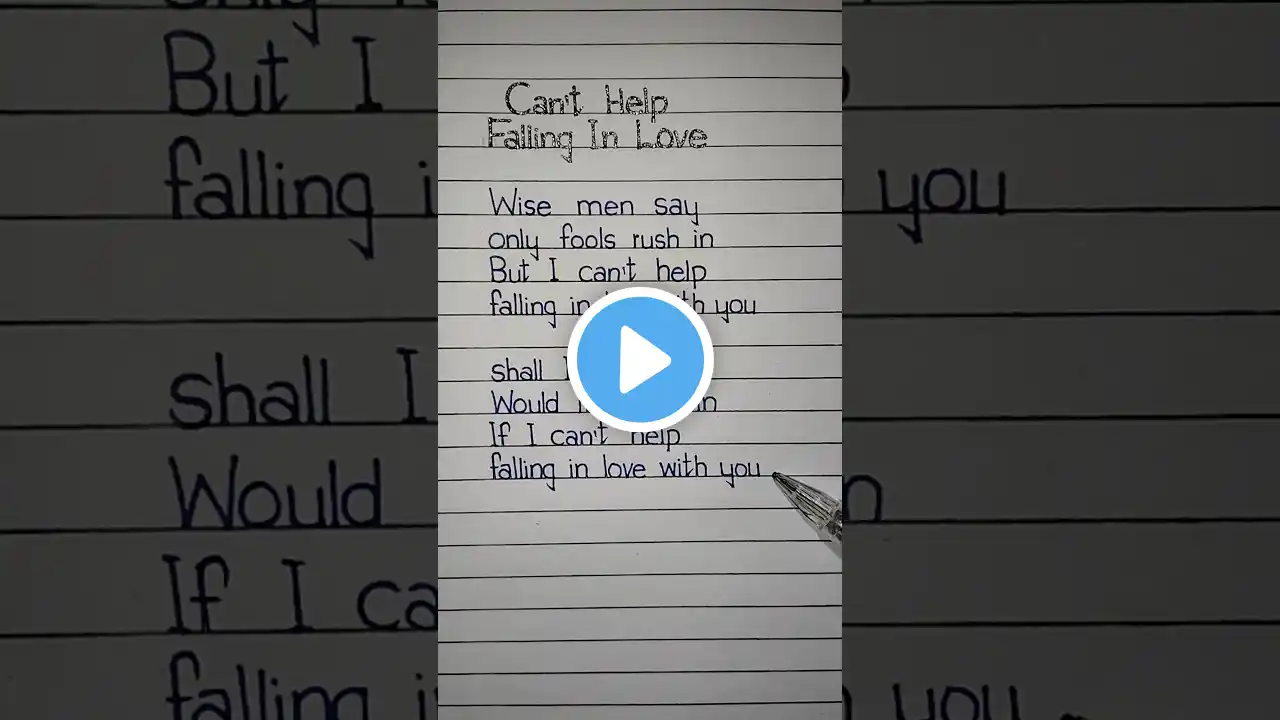 Can't Help
Falling In Love
Wise men say
only fools rush in
But I can't help
falling in you
shall I
Would
If I can't help
falling in love with you